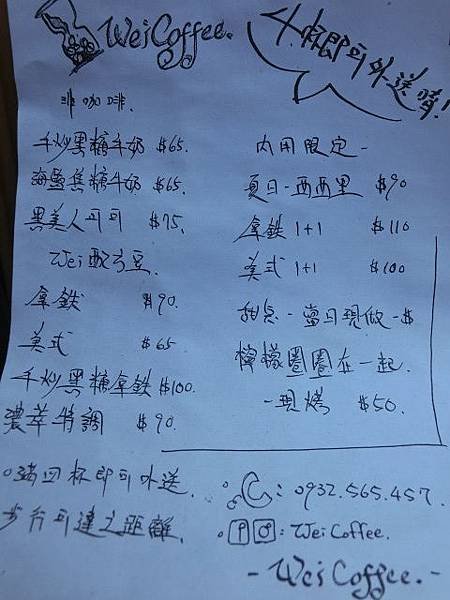 Wei Coffee.
4杯即可外送唷!
非咖啡.
手炒黑糖牛奶 $65.
海鹽焦糖牛奶 $65.
黑美人可可 $75.
Wei配方豆.
拿鐵 $90.
美式 $65
手炒黑糖拿鐵 $100.
濃萃特調 $90.
內用限定-
夏日-西西里 $90
拿鐵 1+1 $110
美式 1+1 $100
甜點-當日現做-$
檸檬圈圈在一起.
-現烤 $50.
滿四杯即可外送.
步行可達之距離.
: 0932.565.457.
: Wei Coffee.
- Wei Coffee. -